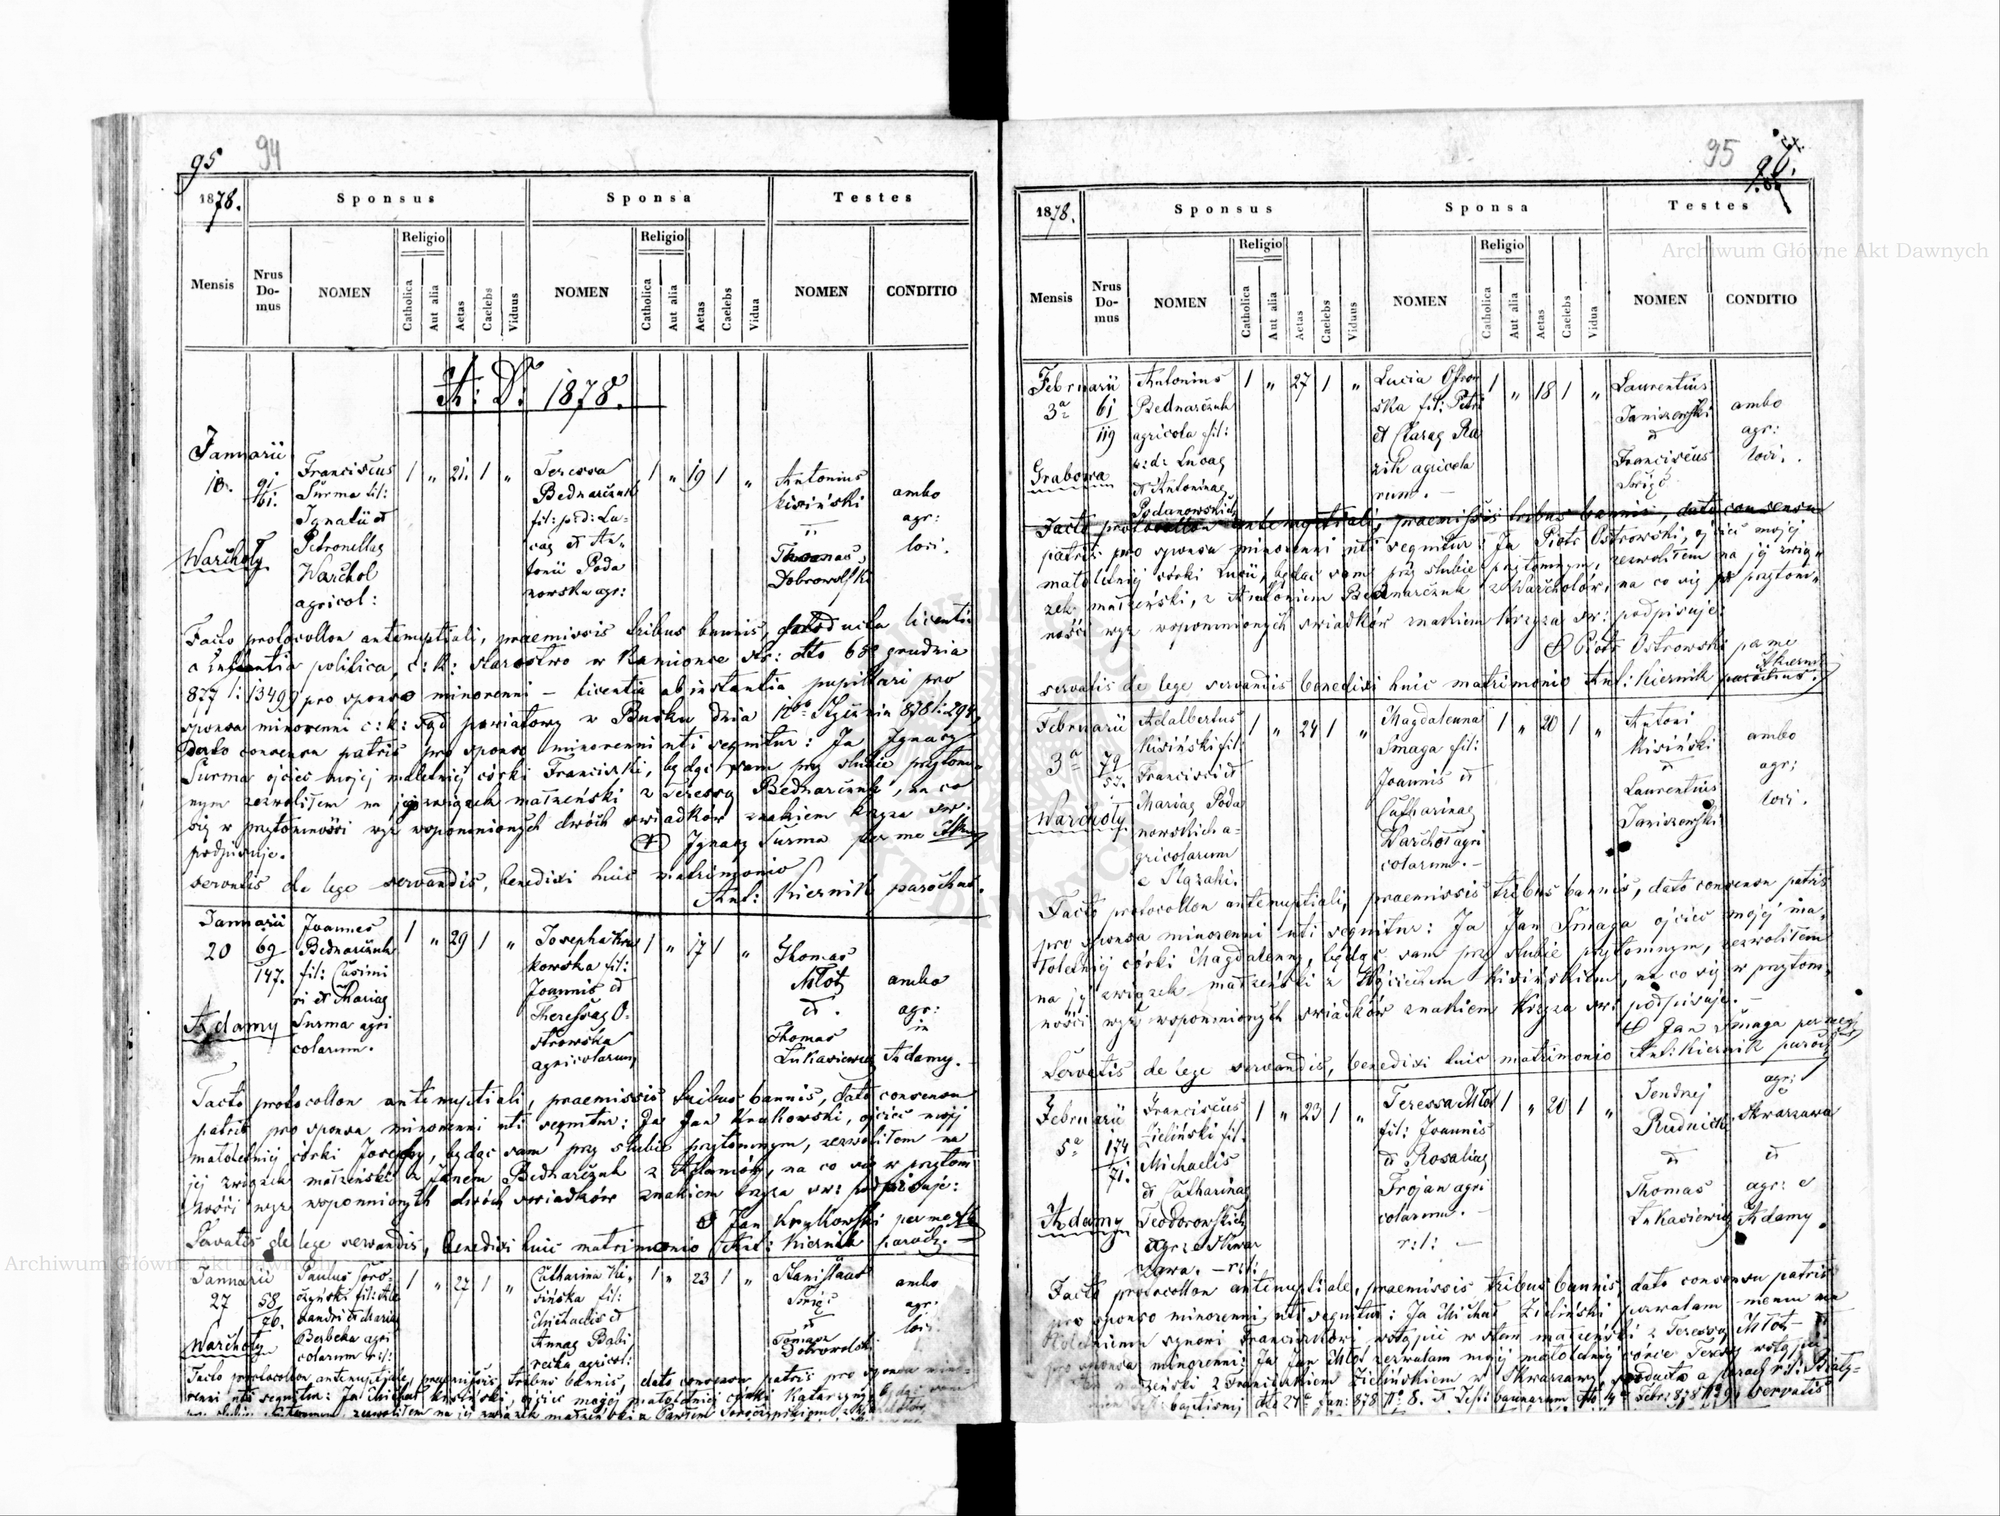 95 94
1878. Sponsus Sponsa Testes
Mensis Nrus Domus NOMEN Religio Catholica Aut alia Aetas Caelebs Viduus NOMEN Religio Catholica Aut alia Aetas Caelebs Vidua NOMEN CONDITIO
A: D: 1878.
Januarii
18. 91 61.
Warchoły
Franciscus
Surma fil:
Ignatii et
Petronellae
Warchoł
agricol:
1 „ 21. 1 „
Teressa
Bednarczuk
fil: p:d: Lu-
cae et An-
tonii Poda
nowska agr:
1 „ 19 1 „
Antonius
Kisiński
et
Thomas
Dobrowolski
ambo
agr:
loci.
Facto protocollon antenuptiali, praemissis tribus bannis, producta licentia
a instantia politica, c: k: starostwo w Kamionce dto grudnia
877 l: 13499 pro sponso minorenni – licentia ab instantia pupillari pro
sponsa minorenni c: k: sąd powiatowy w Busku dnia 12 Stycznia 878 l: 294,
dato consensu patris pro sponso minorenni uti sequitur: Ja Ignacy
Surma ojciec mojej małetnij córki Franciszki, będąc sam przy ślubie przytom-
nym zezwoliłem na jej związek małżeński z Teressą Bednarczuk, na co
się w przytomności wyż wspomnionych dwóch świadków znakiem krzyża św:
podpisuje. Ignacy Surma per me
servatis de lege servandis, benedixi huic matrimonio
Ant: Kiernik parochus.
Januarii
20 69 147.
Adamy
Joannes
Bednarczuk
fil: Casimi
ri et Mariae
Surma agri
colarum.
1 „ 29 1 „
Josepha Kru
kowska fil:
Joannis et
Theressae O-
strowska
agricolarum
1 „ 17 1 „
Thomas
Młot
et.
Thomas
Łukasiewicz
ambo
agr:
in
Adamy.
Facto protocollon antenuptiali, praemissis tribus bannis, dato consensu
patris pro sponsa minorenni uti sequitur: Ja Jan Krukowski, ojciec mojj
małoletnij córki Josephy, będąc sam przy ślubie przytomnym, zezwoliłem na
jej związek małżeński z Janem Bednarczuk z Adamów, na co się w przytom
ności wyż wspomnionych dwóch świadków znakiem krzyża św: podpisuje:
Jan Krukowski per me
Servatis de lege servandis, benedixi huic matrimonio Ant: Kiernik paroch.
Januarii
27 58. 76.
Warchoły
Paulus Soro-
czyński fil: Ale
xandri et Mariae
Berbeka agri
colarum r:l:
1 „ 27 1 „
Catharina Ki-
sińska fil:
Michaelis et
Annae Babi
recka agricol:
1 „ 23 1 „
Stanislaus
et
Tomasz
Dobrowolski
ambo
agr:
loci.
Facto protocollon antenuptiale, praemissis tribus bannis, dato consensu patris pro sponsa mino-
renni uti sequitur: Ja Michał Kisiński, ojciec mojej małoletniej córki Katarzyny, będąc sam
zezwoliłem na jej związek małżeński z Pawłem
95
1878. Sponsus Sponsa Testes
Mensis Nrus Domus NOMEN Religio Catholica Aut alia Aetas Caelebs Viduus NOMEN Religio Catholica Aut alia Aetas Caelebs Vidua NOMEN CONDITIO
Februarii
3a 61 119
Grabowa
Antonius
Bednarczuk
agricola fil:
p:d: Lucae
et Antoninae
Podanowskich
1 „ 27 1 „
Lucia Ostrow
ska fil: Petri
et Clarae Ra
zik agricola
rum. –
1 „ 18 1 „
Laurentius
Janiszewski
et
Franciscus
ambo
agr:
loci.
Facto protocollon antenuptiali, praemissis tribus bannis, dato consensu
patris pro sponsa minorenni uti sequitur: Ja Piotr Ostrowski, ojciec mojej
małoletnij córki Lucii, będąc sam przy ślubie przytomnym, zezwoliłem na jej zwią-
zek małżeński, z Antoniem Bednarczuk z Warchołów, na co się w przytom-
ności wyż wspomnionych świadków znakiem krzyża św: podpisuje:
Piotr Ostrowski per me
servatis de lege servandis benedixi huic matrimonio Ant: Kiernik parochus.
Februarii
3a 79 53.
Warchoły
Adalbertus
Kisiński fil:
Francisci et
Mariae Poda
nowskich a-
gricolarum
1 „ 24 1 „
Magdalenna
Smaga fil:
Joannis et
Catharinae
Warchoł agri
colarum. –
1 „ 20 1 „
Antoni
Kisiński
et
Laurentius
Janiszewski
ambo
agr:
loci.
Facto protocollon antenuptiali, praemissis tribus bannis, dato consensu patris
pro sponsa minorenni uti sequitur: Ja Jan Smaga ojciec mojej ma-
łoletnij córki Magdalenny, będąc sam przy ślubie przytomnym, zezwoliłem
na jej związek małżeński z Wojciechem Kisińskiem, na co się w przytom-
ności wyż wspomnionych świadków znakiem krzyża św: podpisuje. –
Jan Smaga per me
Servatis de lege servandis, benedixi huic matrimonio Ant: Kiernik paroch
Februarii
5a 174 71.
Adamy
Franciscus
Zieliński fil:
Michaelis
et Catharinae
Teodorowskich
agr: e Skwar
zawa. – r:l:
1 „ 23 1 „
Teressa Młot
fil: Joannis
et Rosaliae
Trojan agri
colarum. –
r:l: –
1 „ 20 1 „
Jendrzej
Rudnicki
et
Thomas
Łukasiewicz
agr: e
Skwarzawa
et
agr: e
Adamy.
Facto protocollon antenuptiale, praemissis tribus bannis, dato consensu patris
pro sponso minorenni, uti sequitur: Ja Michał Zieliński pozwalam memu ma
łoletniemu synowi Franciszkowi wstąpić w stan małżeński z Teressą Młot
pro sponsa minorenni: Ja Jan Młot zezwalam mojej małoletnij córce Teressy wstąpić
małżeński z Franciszkiem Zielińskiem w Skwarzawy, producta a paroch r:l:
baptismi dto 27a Jan: 878 No 8. Test: bannorum dto 4a Febr: 878 No 9, servatis
Archiwum Główne Akt Dawnych
Archiwum Główne Akt Dawnych